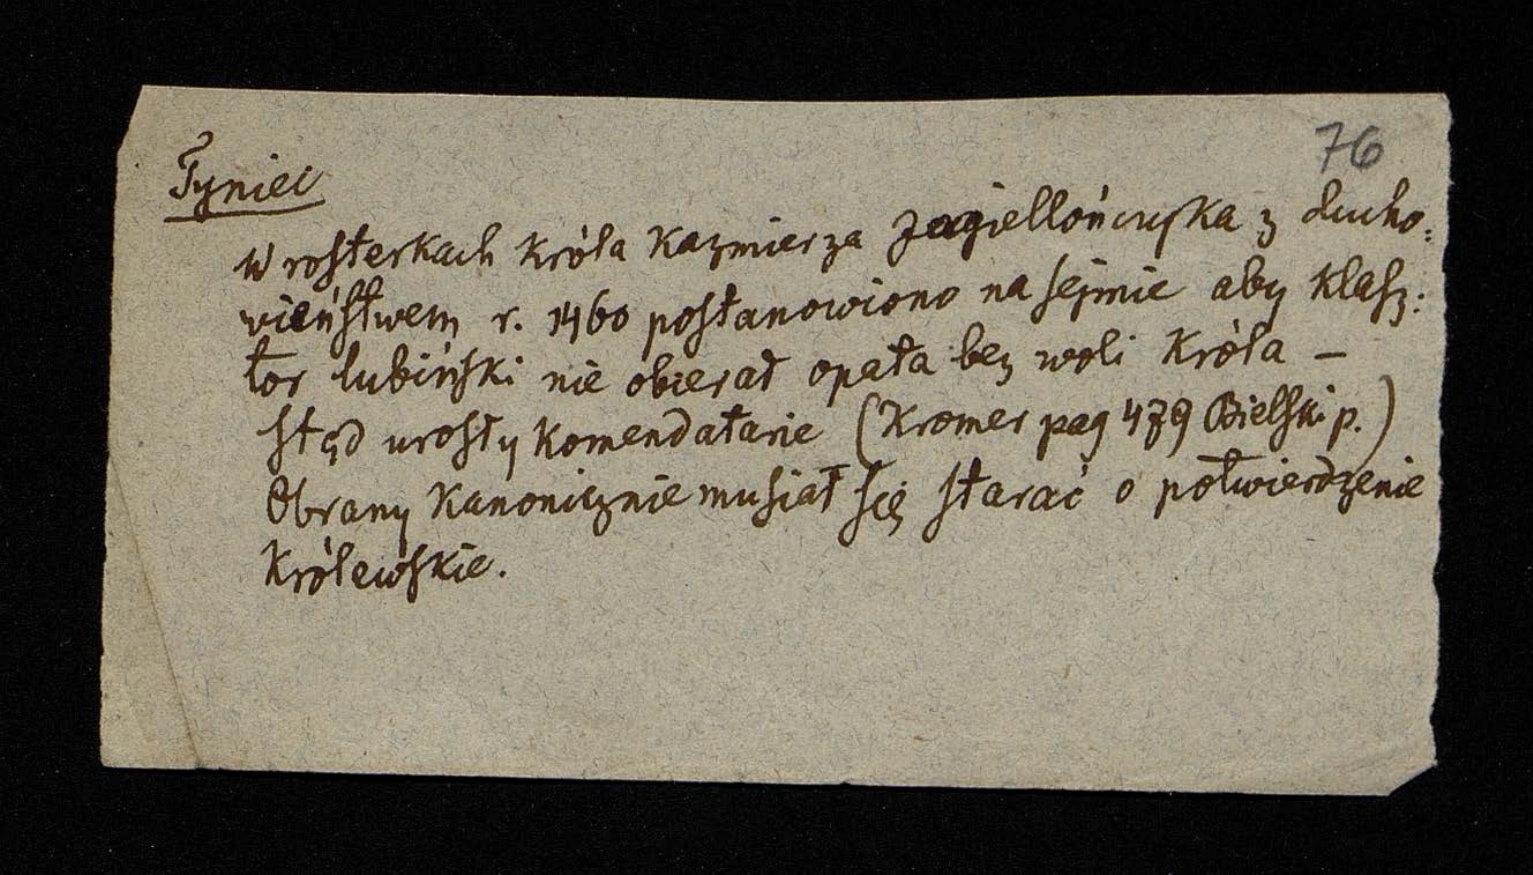 76
Tyniec
W rosterkach Króla Kazmierza Jagiellończyka z ducho:
wieństwem r. 1460 postanowiono na sejmie aby klasz:
tor lubiński nie obierał opata bez woli Króla —
stąd urosły Komendatarie (Kromer pag 479 Bielski p.)
Obrany Kanonicznie musiał się starać o potwierdzenie
Królewskie.